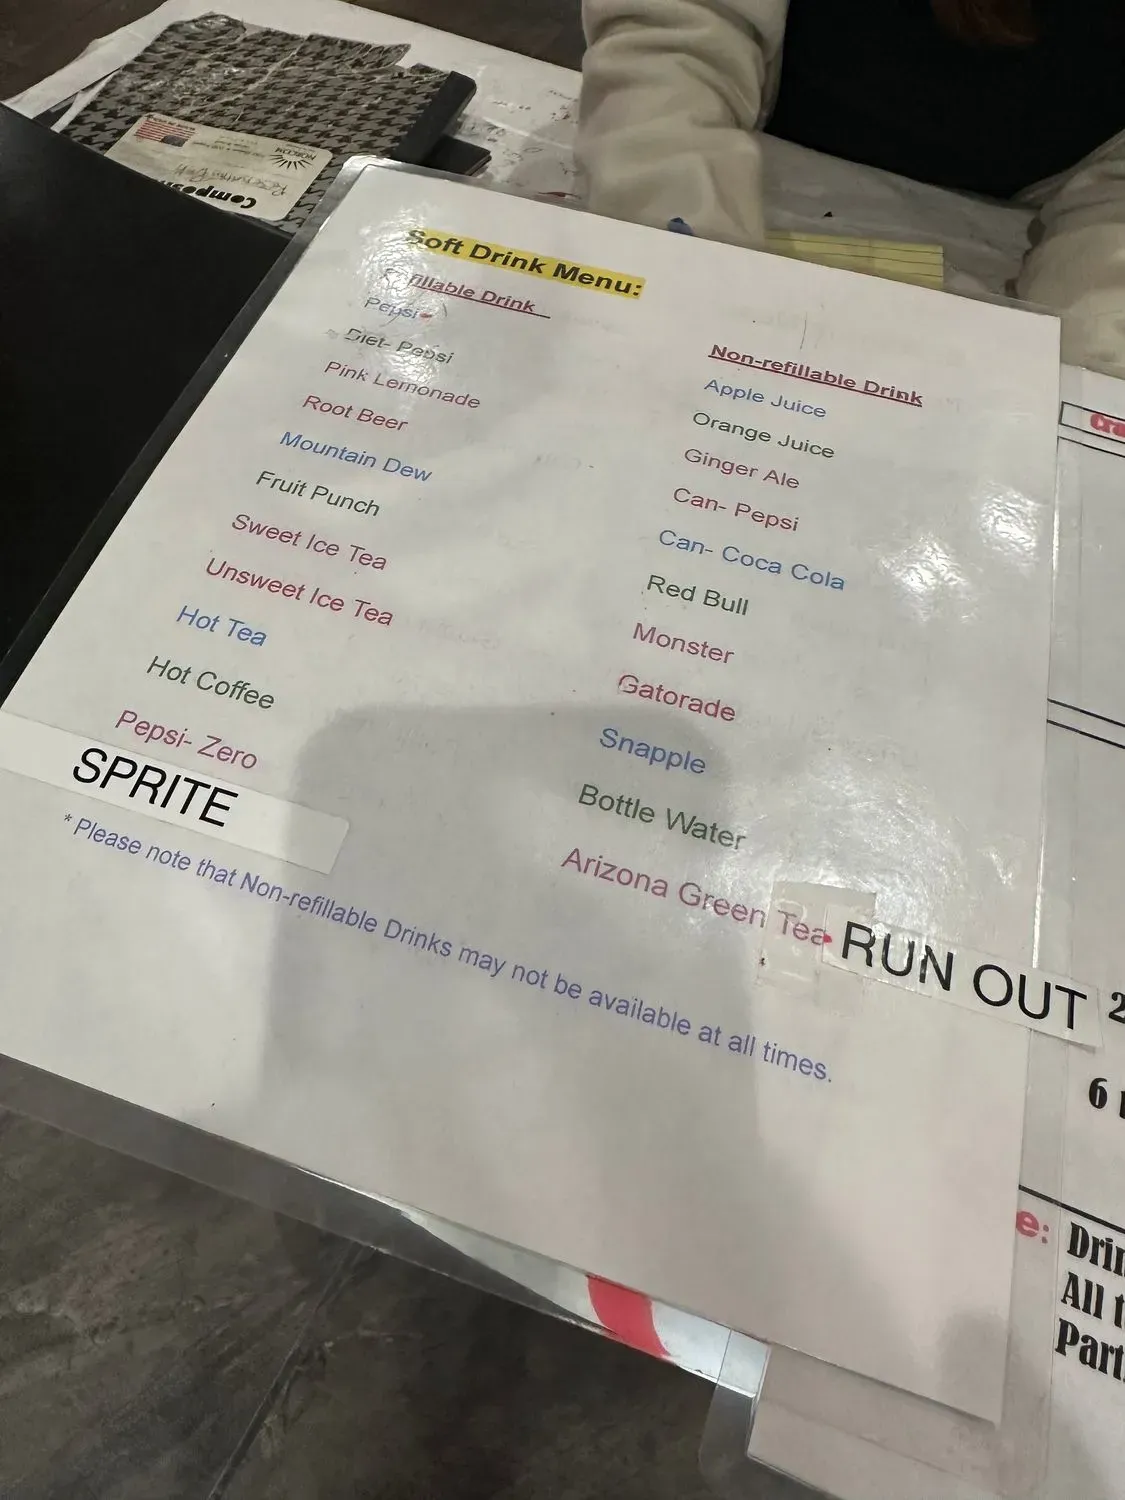 Soft Drink Menu:
Refillable Drink
Pepsi
Diet- Pepsi
Pink Lemonade
Root Beer
Mountain Dew
Fruit Punch
Sweet Ice Tea
Unsweet Ice Tea
Hot Tea
Hot Coffee
Pepsi- Zero
SPRITE
Non-refillable Drink
Apple Juice
Orange Juice
Ginger Ale
Can- Pepsi
Can- Coca Cola
Red Bull
Monster
Gatorade
Snapple
Bottle Water
Arizona Green Tea
RUN OUT
* Please note that Non-refillable Drinks may not be available at all times.
NORCOM
Compos
Cra
2
6
e:
Drin
All t
Part